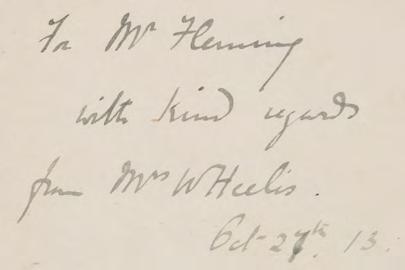 For Mr Fleming
with kind regards
from Mrs W Heelis.
Oct 27th. 13.